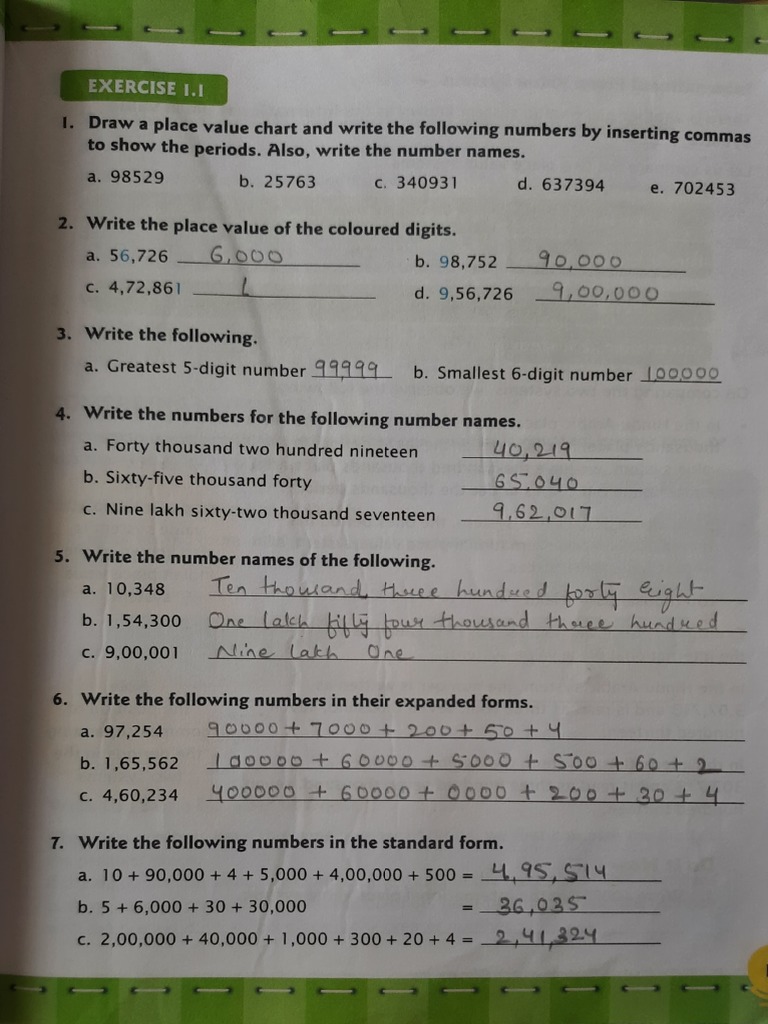 EXERCISE 1.1
1. Draw a place value chart and write the following numbers by inserting commas
to show the periods. Also, write the number names.
a. 98529 b. 25763 c. 340931 d. 637394 e. 702453
2. Write the place value of the coloured digits.
a. 56,726 6,000 b. 98,752 90,000
c. 4,72,861 1 d. 9,56,726 9,00,000
3. Write the following.
a. Greatest 5-digit number 99,999 b. Smallest 6-digit number 1,00,000
4. Write the numbers for the following number names.
a. Forty thousand two hundred nineteen 40,219
b. Sixty-five thousand forty 65,040
c. Nine lakh sixty-two thousand seventeen 9,62,017
5. Write the number names of the following.
a. 10,348 Ten thousand, three hundred forty eight
b. 1,54,300 One lakh fifty four thousand three hundred
c. 9,00,001 Nine lakh One
6. Write the following numbers in their expanded forms.
a. 97,254 90000 + 7000 + 200 + 50 + 4
b. 1,65,562 100000 + 60000 + 5000 + 500 + 60 + 2
c. 4,60,234 400000 + 60000 + 0000 + 200 + 30 + 4
7. Write the following numbers in the standard form.
a. 10 + 90,000 + 4 + 5,000 + 4,00,000 + 500 = 4,95,514
b. 5 + 6,000 + 30 + 30,000 = 36,035
c. 2,00,000 + 40,000 + 1,000 + 300 + 20 + 4 = 2,41,324